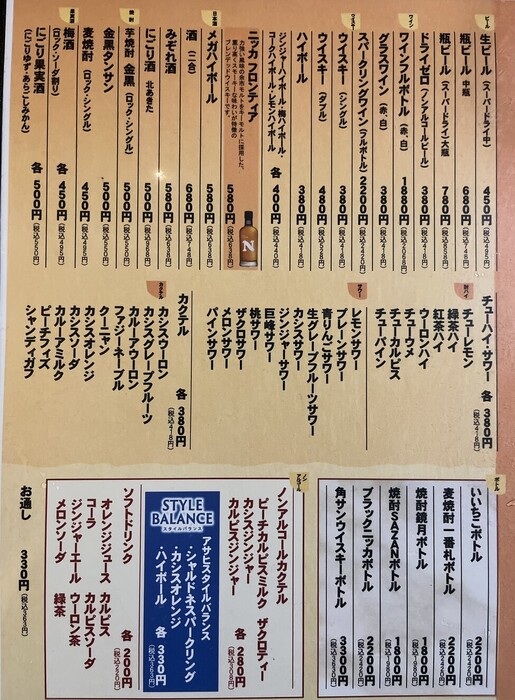 ビール
生ビール(スーパードライ中) 450円(税込495円)
瓶ビール 中瓶 680円(税込748円)
瓶ビール(スーパードライ)大瓶 780円(税込858円)
ドライゼロ(ノンアルコールビール) 380円(税込418円)
ワイン
ワイン・フルボトル(赤、白) 1880円(税込2068円)
グラスワイン(赤、白) 380円(税込418円)
スパークリングワイン(フルボトル) 2200円(税込2420円)
ウイスキー
ウイスキー(シングル) 380円(税込418円)
ウイスキー(ダブル) 480円(税込528円)
ハイボール 380円(税込418円)
ジンジャーハイボール・梅ハイボール・
コークハイボール・レモンハイボール 各 400円(税込440円)
ニッカ フロンティア 580円(税込638円)
力強い風味の余市モルトをキーモルトに使用した、
薫り高くスモーキーな味わいが特徴の
ブレンデッドウイスキーです。
N
メガハイボール 580円(税込638円)
日本酒
酒(二合) 680円(税込748円)
みぞれ酒 580円(税込638円)
にごり酒 北あきた 500円(税込550円)
焼酎
芋焼酎 金黒(ロック・シングル) 500円(税込550円)
金黒タンサン 500円(税込550円)
麦焼酎(ロック・シングル) 450円(税込495円)
果実酒
梅酒(ロック・ソーダ割り) 各 450円(税込495円)
にごり果実酒 各 500円(税込550円)
(にごりゆず・あらごしみかん)
酎ハイ
チューハイ・サワー 各 380円(税込418円)
チューレモン
緑茶ハイ
紅茶ハイ
ウーロンハイ
チューウメ
チューカルピス
チューパイン
サワー
レモンサワー
プレーンサワー
青りんごサワー
生グレープフルーツサワー
カシスサワー
ジンジャーサワー
巨峰サワー
桃サワー
ザクロサワー
メロンサワー
パインサワー
カクテル
カクテル 各 380円(税込418円)
カシスウーロン
カシスグレープフルーツ
カルーアウーロン
ファジーネーブル
クーニャン
カシスオレンジ
カシスソーダ
カルーアミルク
ピーチフィズ
シャンディガフ
ボトル
いいちこボトル 2200円(税込2420円)
麦焼酎一番札ボトル 2200円(税込2420円)
焼酎鏡月ボトル 1800円(税込1980円)
焼酎SAZANボトル 1800円(税込1980円)
ブラックニッカボトル 2200円(税込2420円)
角サンウイスキーボトル 3300円(税込3630円)
ノンアルコール
ノンアルコールカクテル 各 280円(税込308円)
ピーチカルピスミルク ザクロティー
カシスジンジャー
カルピスジンジャー
STYLE BALANCE
スタイルバランス
アサヒスタイルバランス
・シャルドネスパークリング
・カシスオレンジ
・ハイボール 各 330円(税込363円)
ソフトドリンク 各 200円(税込220円)
オレンジジュース カルピス
コーラ カルピスソーダ
ジンジャーエール ウーロン茶
メロンソーダ 緑茶
お通し 330円(税込363円)